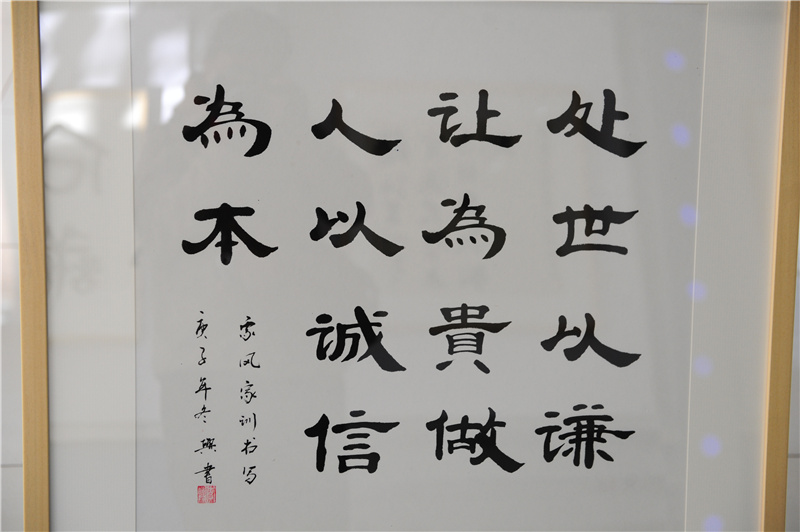 处世以谦
让為貴做
人以诚信
為本
家风家训书写
庚子年冬
書